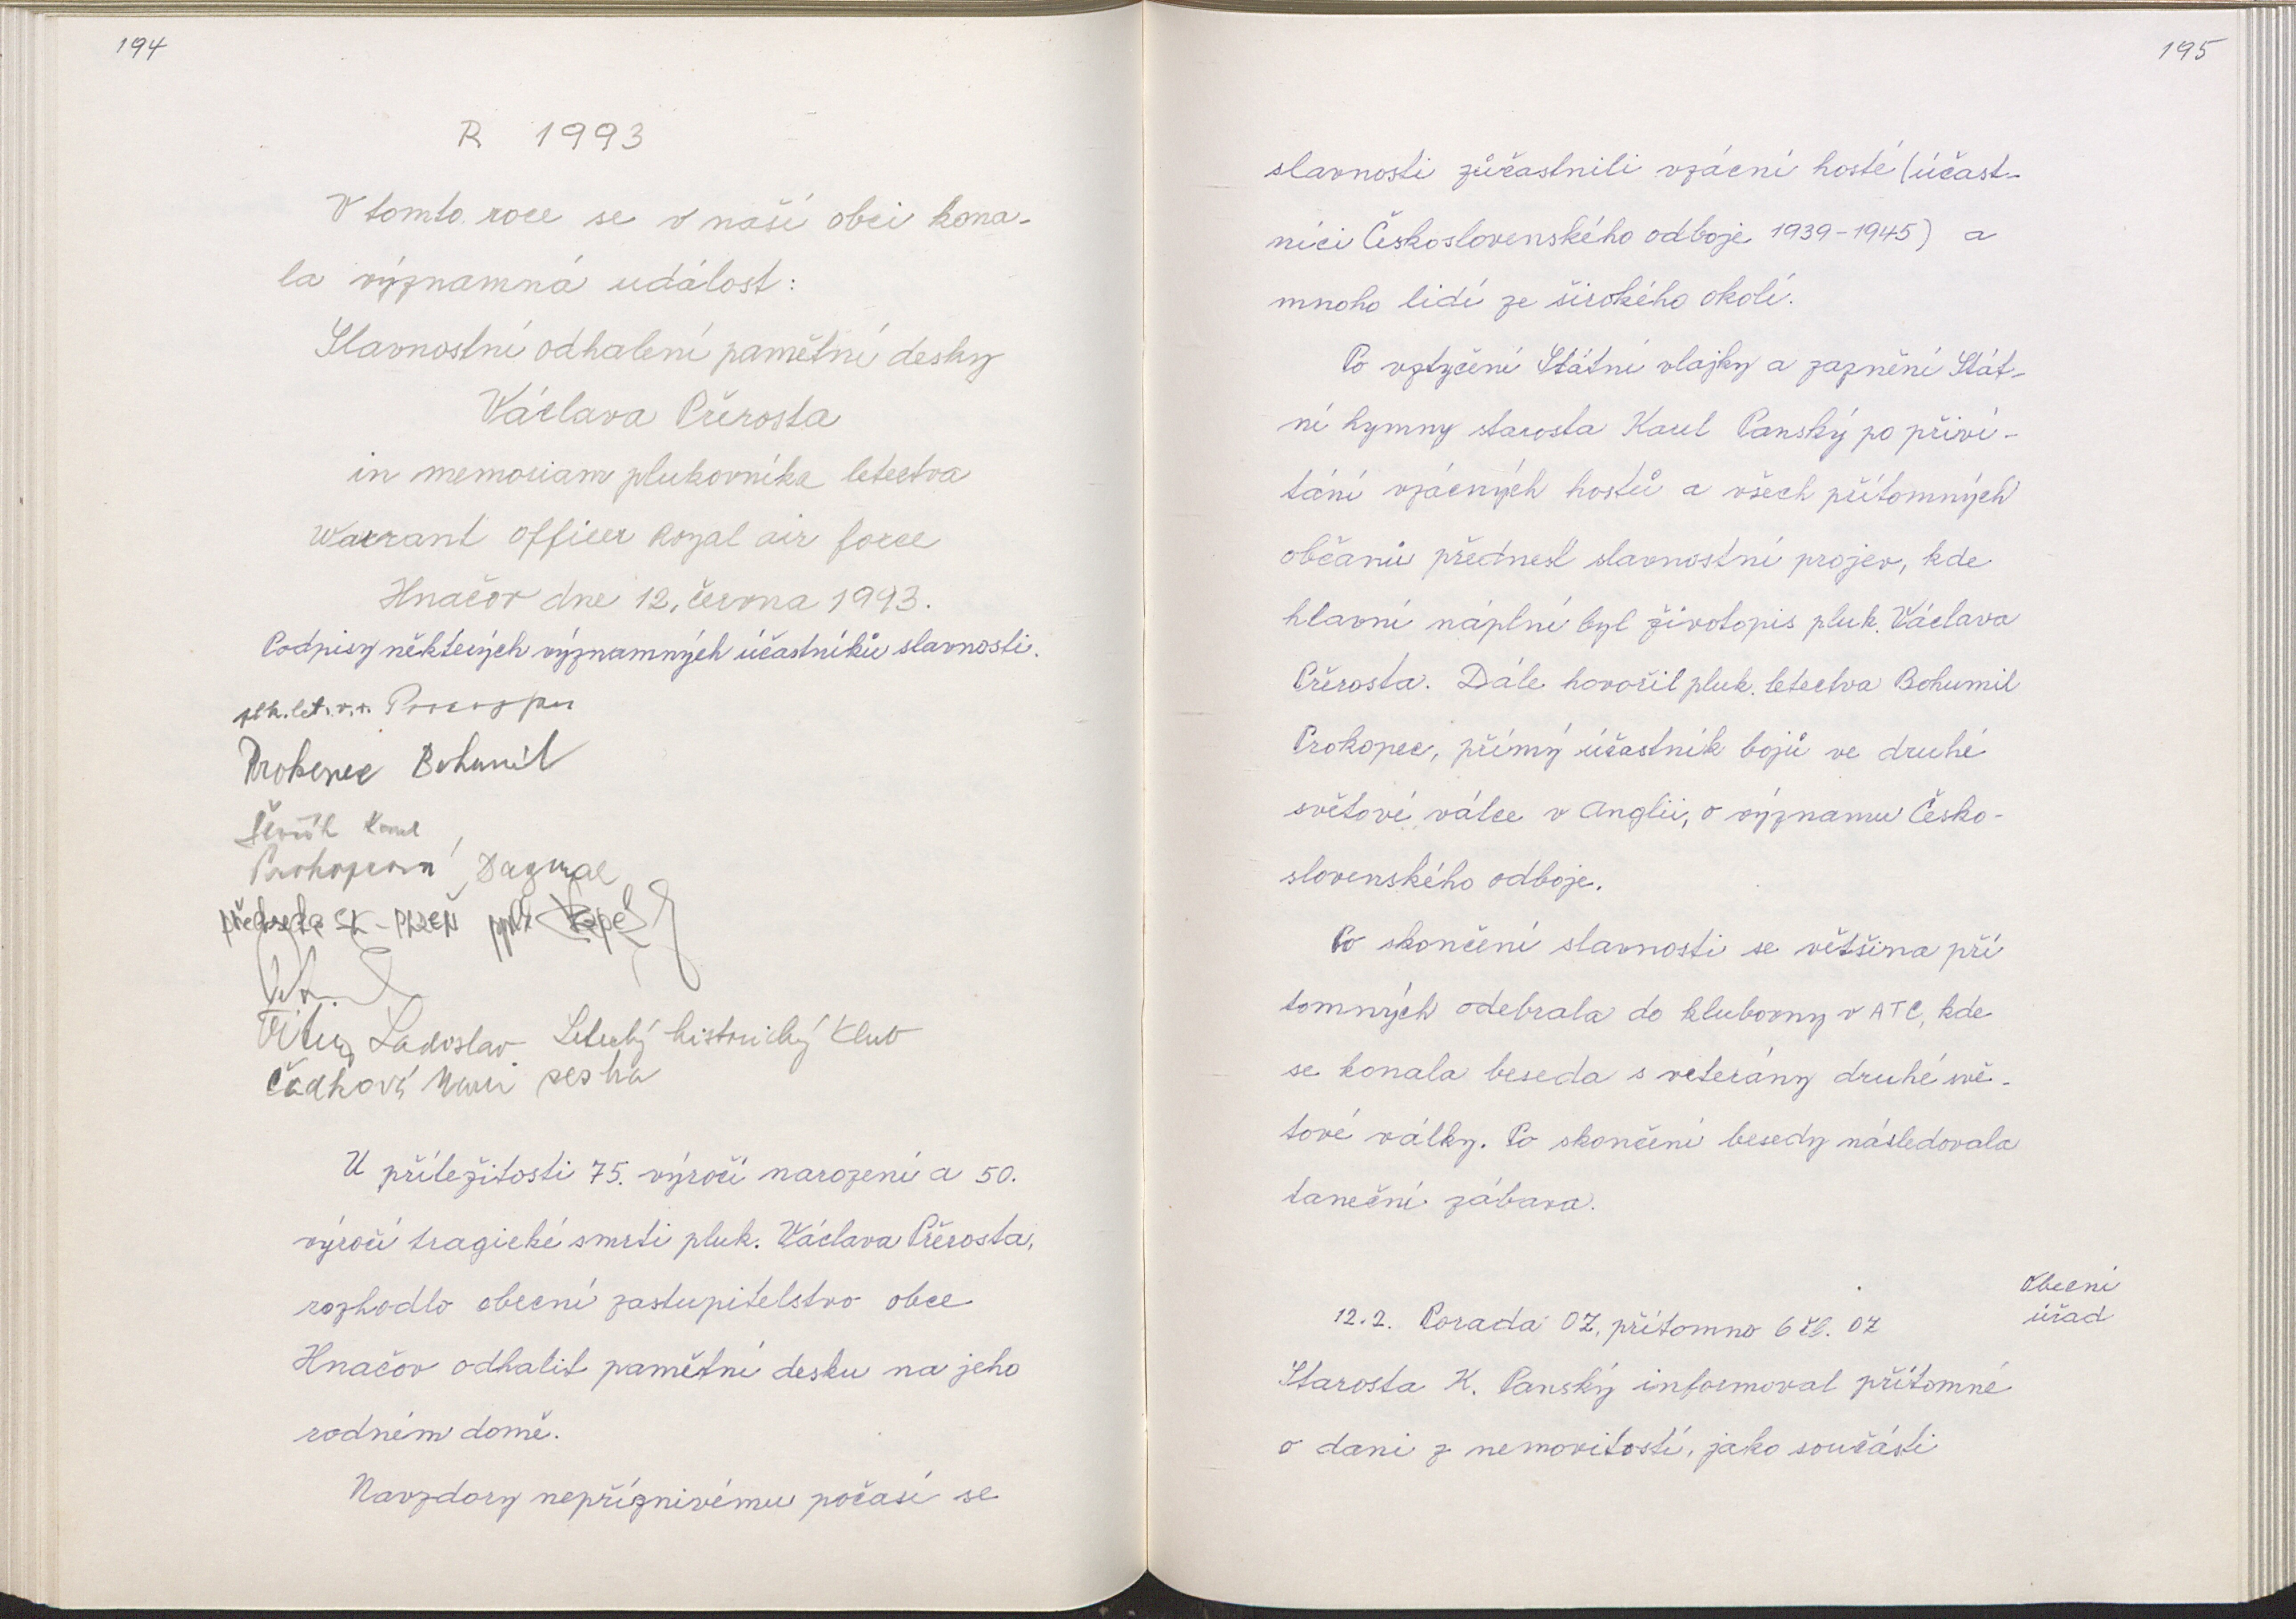 194
R 1993
V tomto roce se v naší obci kona-
la významná událost:
Slavnostní odhalení pamětní desky
Václava Přerosta
in memoriam plukovníka letectva
Warrant officer Royal air force
Hnačov dne 12. června 1993.
Podpisy některých významných účastníků slavnosti.
plk. let. v. v.
Prokopec Bohumil
Karel
Prokopcová Dagmar
předseda SK - Plzeň pplk
Ladoslav Letecký historický klub
sestra
U příležitosti 75. výročí narození a 50.
výročí tragické smrti pluk. Václava Přerosta,
rozhodlo obecní zastupitelstvo obce
Hnačov odhalit pamětní desku na jeho
rodném domě.
Navzdory nepříznivému počasí se
195
slavnosti zůčastnili vzácní hosté (účast-
níci Československého odboje 1939-1945) a
mnoho lidí ze širokého okolí.
Po vztyčení Státní vlajky a zaznění Stát-
ní hymny starosta Karel Panský po přiví-
tání vzácných hostů a všech přítomných
občanů přednesl slavnostní projev, kde
hlavní náplní byl životopis pluk. Václava
Přerosta. Dále hovořil pluk. letectva Bohumil
Prokopec, přímý účastník bojů ve druhé
světové válce v Anglii, o významu Česko-
slovenského odboje.
Po skončení slavnosti se většina pří
tomných odebrala do klubovny v ATC, kde
se konala beseda s veterány druhé svě-
tové války. Po skončení besedy následovala
taneční zábava.
Obecní
úřad
12.2. Porada OZ, přítomno 6 čl. OZ
Starosta K. Panský informoval přítomné
o dani z nemovitostí, jako součásti